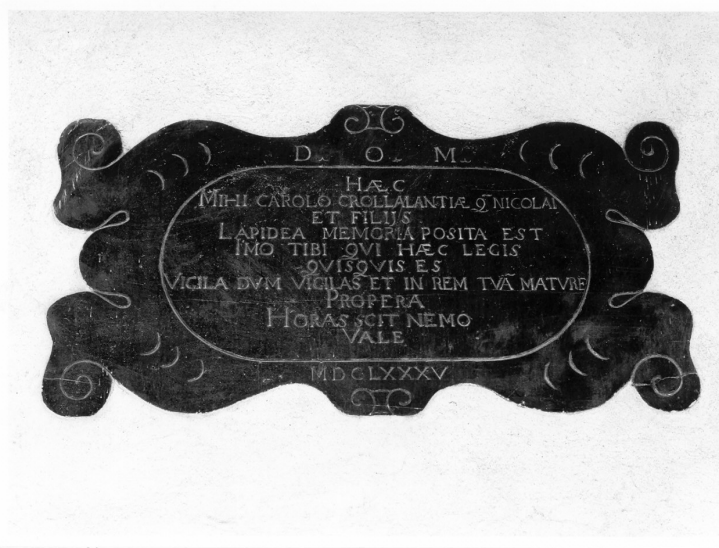 D. O. M.
HÆC
MIHI CAROLO CROLLALANTIÆ Q̃ NICOLAI
ET FILIJS
LAPIDEA MEMORIA POSITA EST
IMO TIBI QVI HÆC LEGIS
QVISQVIS ES
VIGILA DVM VIGILAS ET IN REM TVÃ MATVRE
PROPERA
HORAS SCIT NEMO
VALE
MDCLXXXV